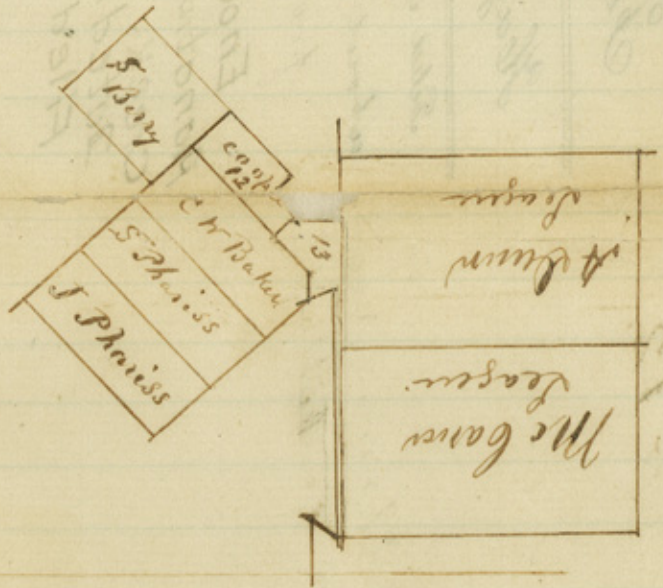 S
Berry
Coop
12
C W Baker
13
S Phariss
S Phariss
A Dunn
League
McCann
League